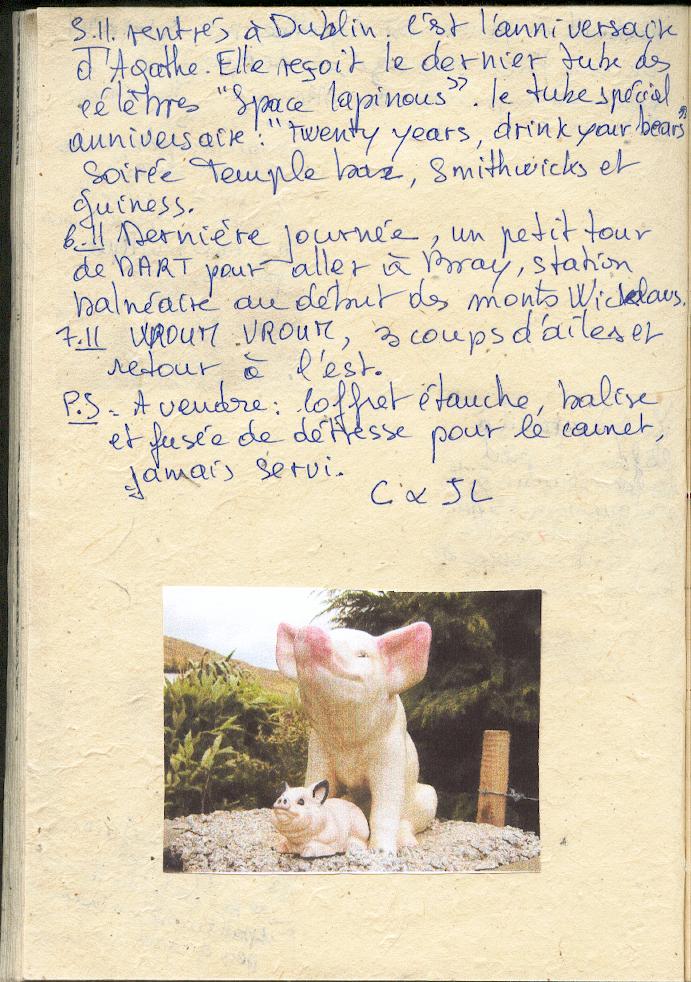 5.11. rentrés à Dublin. C'est l'anniversaire
d'Agathe. Elle reçoit le dernier tube des
célèbres "Space lapinous". le tube spécial
anniversaire: "twenty years, drink your bears"
Soirée Temple bar, Smithwicks et
guiness.
6.11 Dernière journée, un petit tour
de DART pour aller à Bray, station
balnéaire au début des monts
7.11 VROUM VROUM, 3 coups d'ailes et
retour à l'est.
P.S = A vendre: coffret étanche, balise
et fusée de détresse pour le carnet,
jamais servi.
C & JL